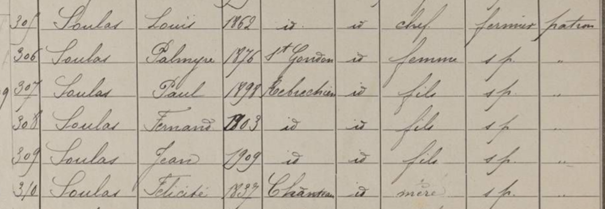 305 Soulas Louis 1862 id id chef fermier patron
306 Soulas Palmyre 1876 St Gondon id femme s.p. "
307 Soulas Paul 1898 id fils s.p. "
308 Soulas Fernand 1903 id id fils s.p. "
309 Soulas Jean 1909 id id fils s.p. "
310 Soulas Félicité 1837 id mère s.p. "